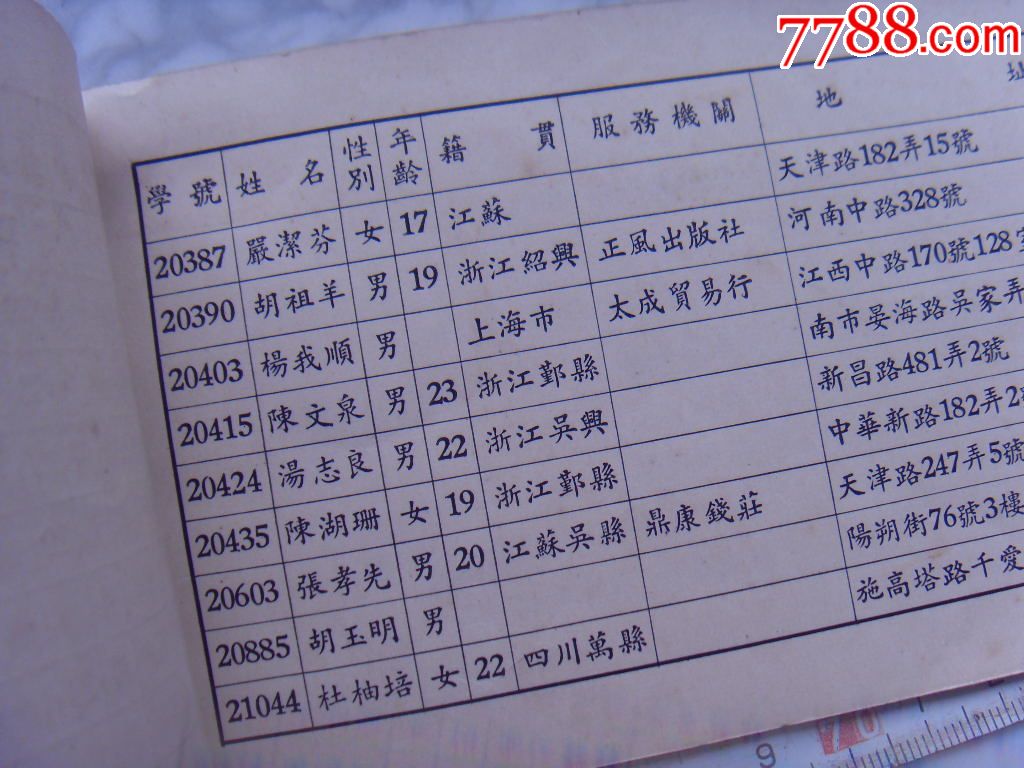 7788.com
學號 姓名 性別 年齡 籍貫 服務機關 地址
20387 嚴潔芬 女 17 江蘇 天津路182弄15號
20390 胡祖羊 男 19 浙江紹興 正風出版社 河南中路328號
20403 楊我順 男 上海市 太成貿易行 江西中路170號128室
20415 陳文泉 男 23 浙江鄞縣 南市晏海路吳家弄
20424 湯志良 男 22 浙江吳興 新昌路481弄2號
20435 陳湖珊 女 19 浙江鄞縣 中華新路182弄2
20603 張孝先 男 20 江蘇吳縣 鼎康錢莊 天津路247弄5號
20885 胡玉明 男 陽朔街76號3樓
21044 杜柚培 女 22 四川萬縣 施高塔路千愛
9 10